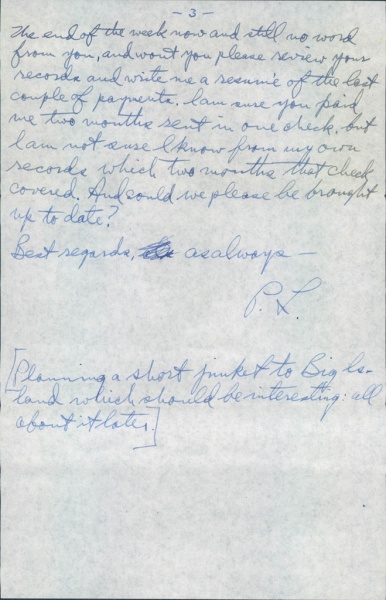 - 3 -
The end of the week now and still no word
from you, and wont you please review your
records and write me a resumé of the last
couple of payments. I am sure you paid
me two months sent in one check, but
I am not sure I know from my own
records which two months that check
covered. And could we please be brought
up to date?
Best regards, as always —
P. L.
[Planning a short junket to Big Is-
land which should be interesting: all
about it later.]